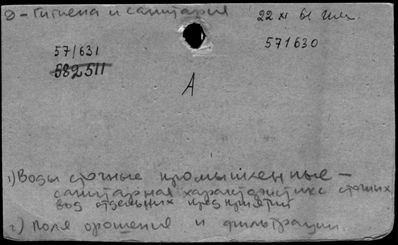 Э-Гигиена и санитария
22 XI 61
571630
57/631
682511
А
1) Воды сточные промышленные -
санитарная характеристика сточных
вод отдельных предприятий
2) Поля орошения и фильтрации.